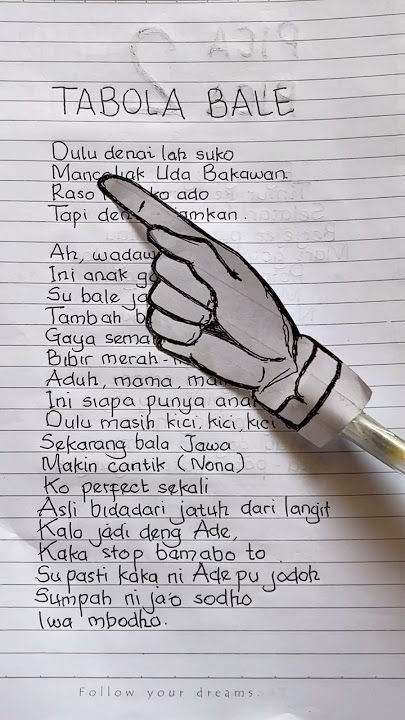 TABOLA BALE
Dulu denai lah suko
Mancaliak Uda Bakawan
Raso ado
Tapi
Ah,
Ini anak
Su bale
Tambah
Gaya
Bibir merah-
Aduh, mama,
Ini siapa punya
Dulu masih kici, kici, kici
Sekarang bala Jawa
Makin cantik (Nona)
Ko perfect sekali
Asli bidadari jatuh dari langit
Kalo jadi deng Ade,
Kaka stop bamabo to
Su pasti kaka ni Ade pu jodoh
Sumpah ni ja'o sodho
Iwa mbodho.
Follow your dreams.